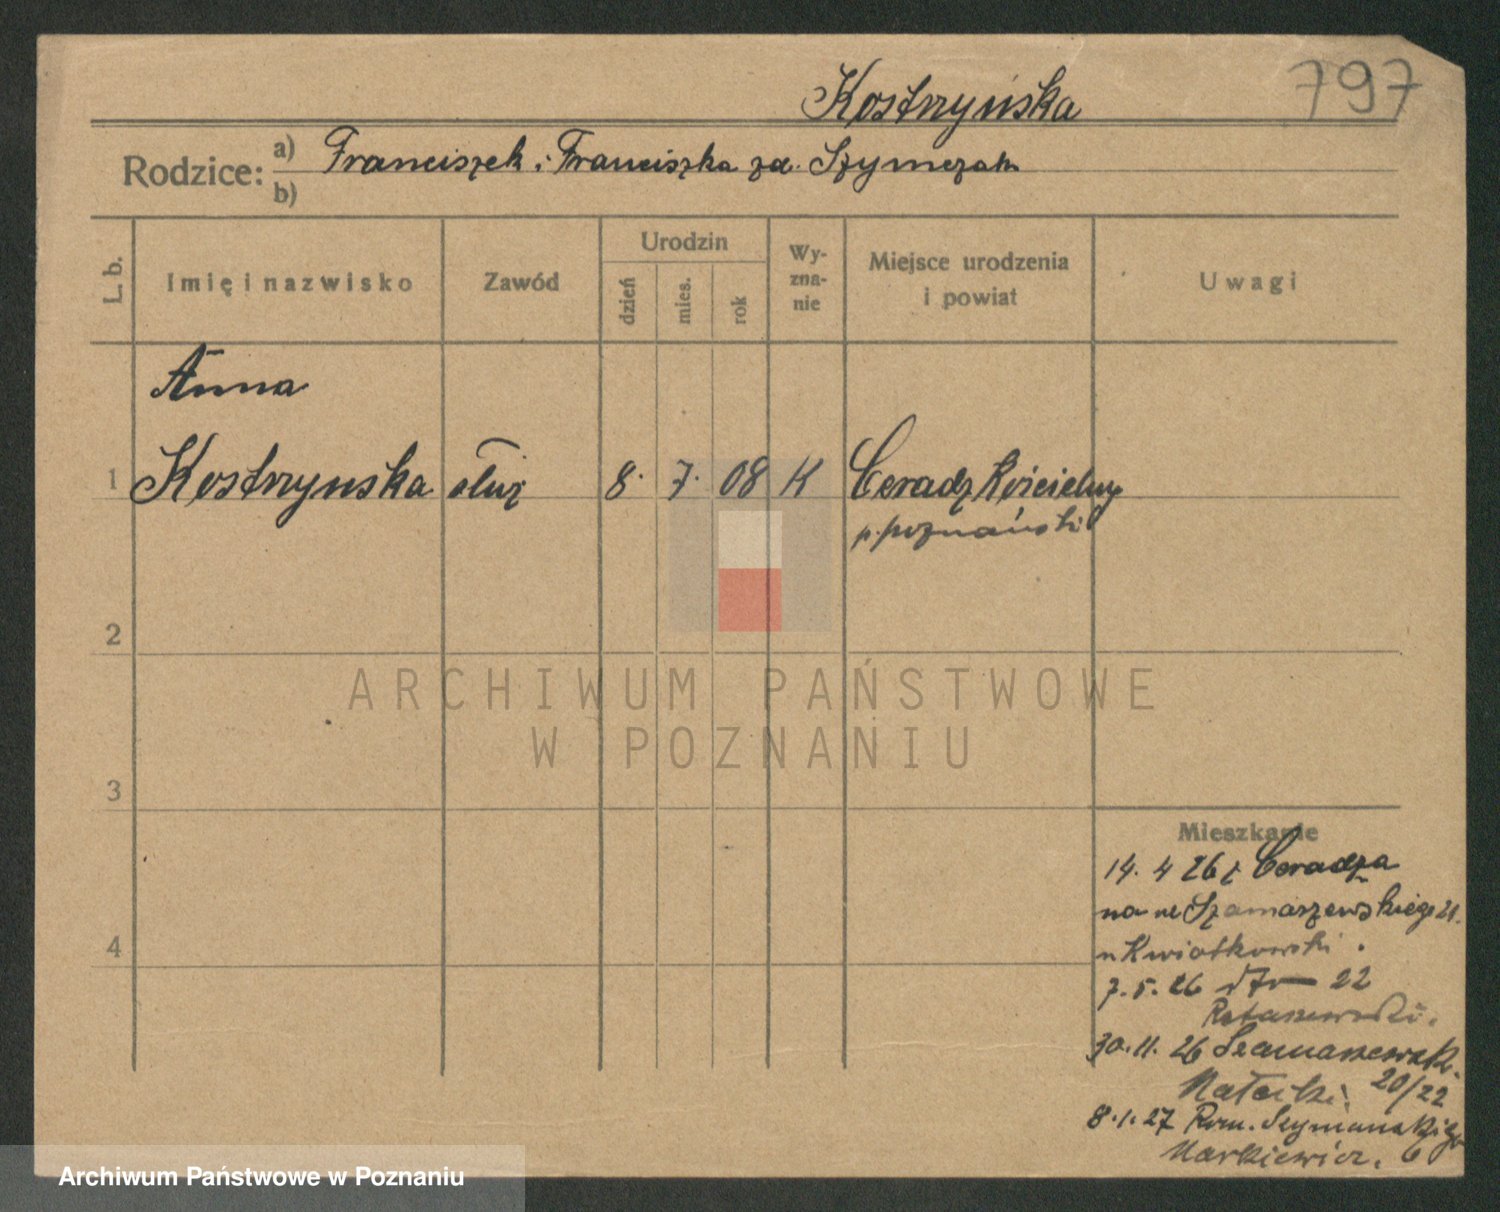 797
Kostrzyńska
Rodzice: a) Franciszek i Franciszka zd. Szymczak
b)
L. b.
Imię i nazwisko
Zawód
Urodzin
dzień
mies.
rok
Wy-
zna-
nie
Miejsce urodzenia
i powiat
Uwagi
Anna
1 Kostrzynska służ 8. 7. 08 K Ceradz Kościelny
p. poznański
2
3
4
ARCHIWUM PAŃSTWOWE
W POZNANIU
Mieszkanie
14. 4 26 z Ceradza
na ul Szamarzewskiego 21.
u Kwiatkowski.
7. 5. 26 22
Rataszewski.
30. 11. 26 Szamarzewsk.
20/22
8. 1. 27 Rom. Szymańskiego
Markiewicz. 6
Archiwum Państwowe w Poznaniu